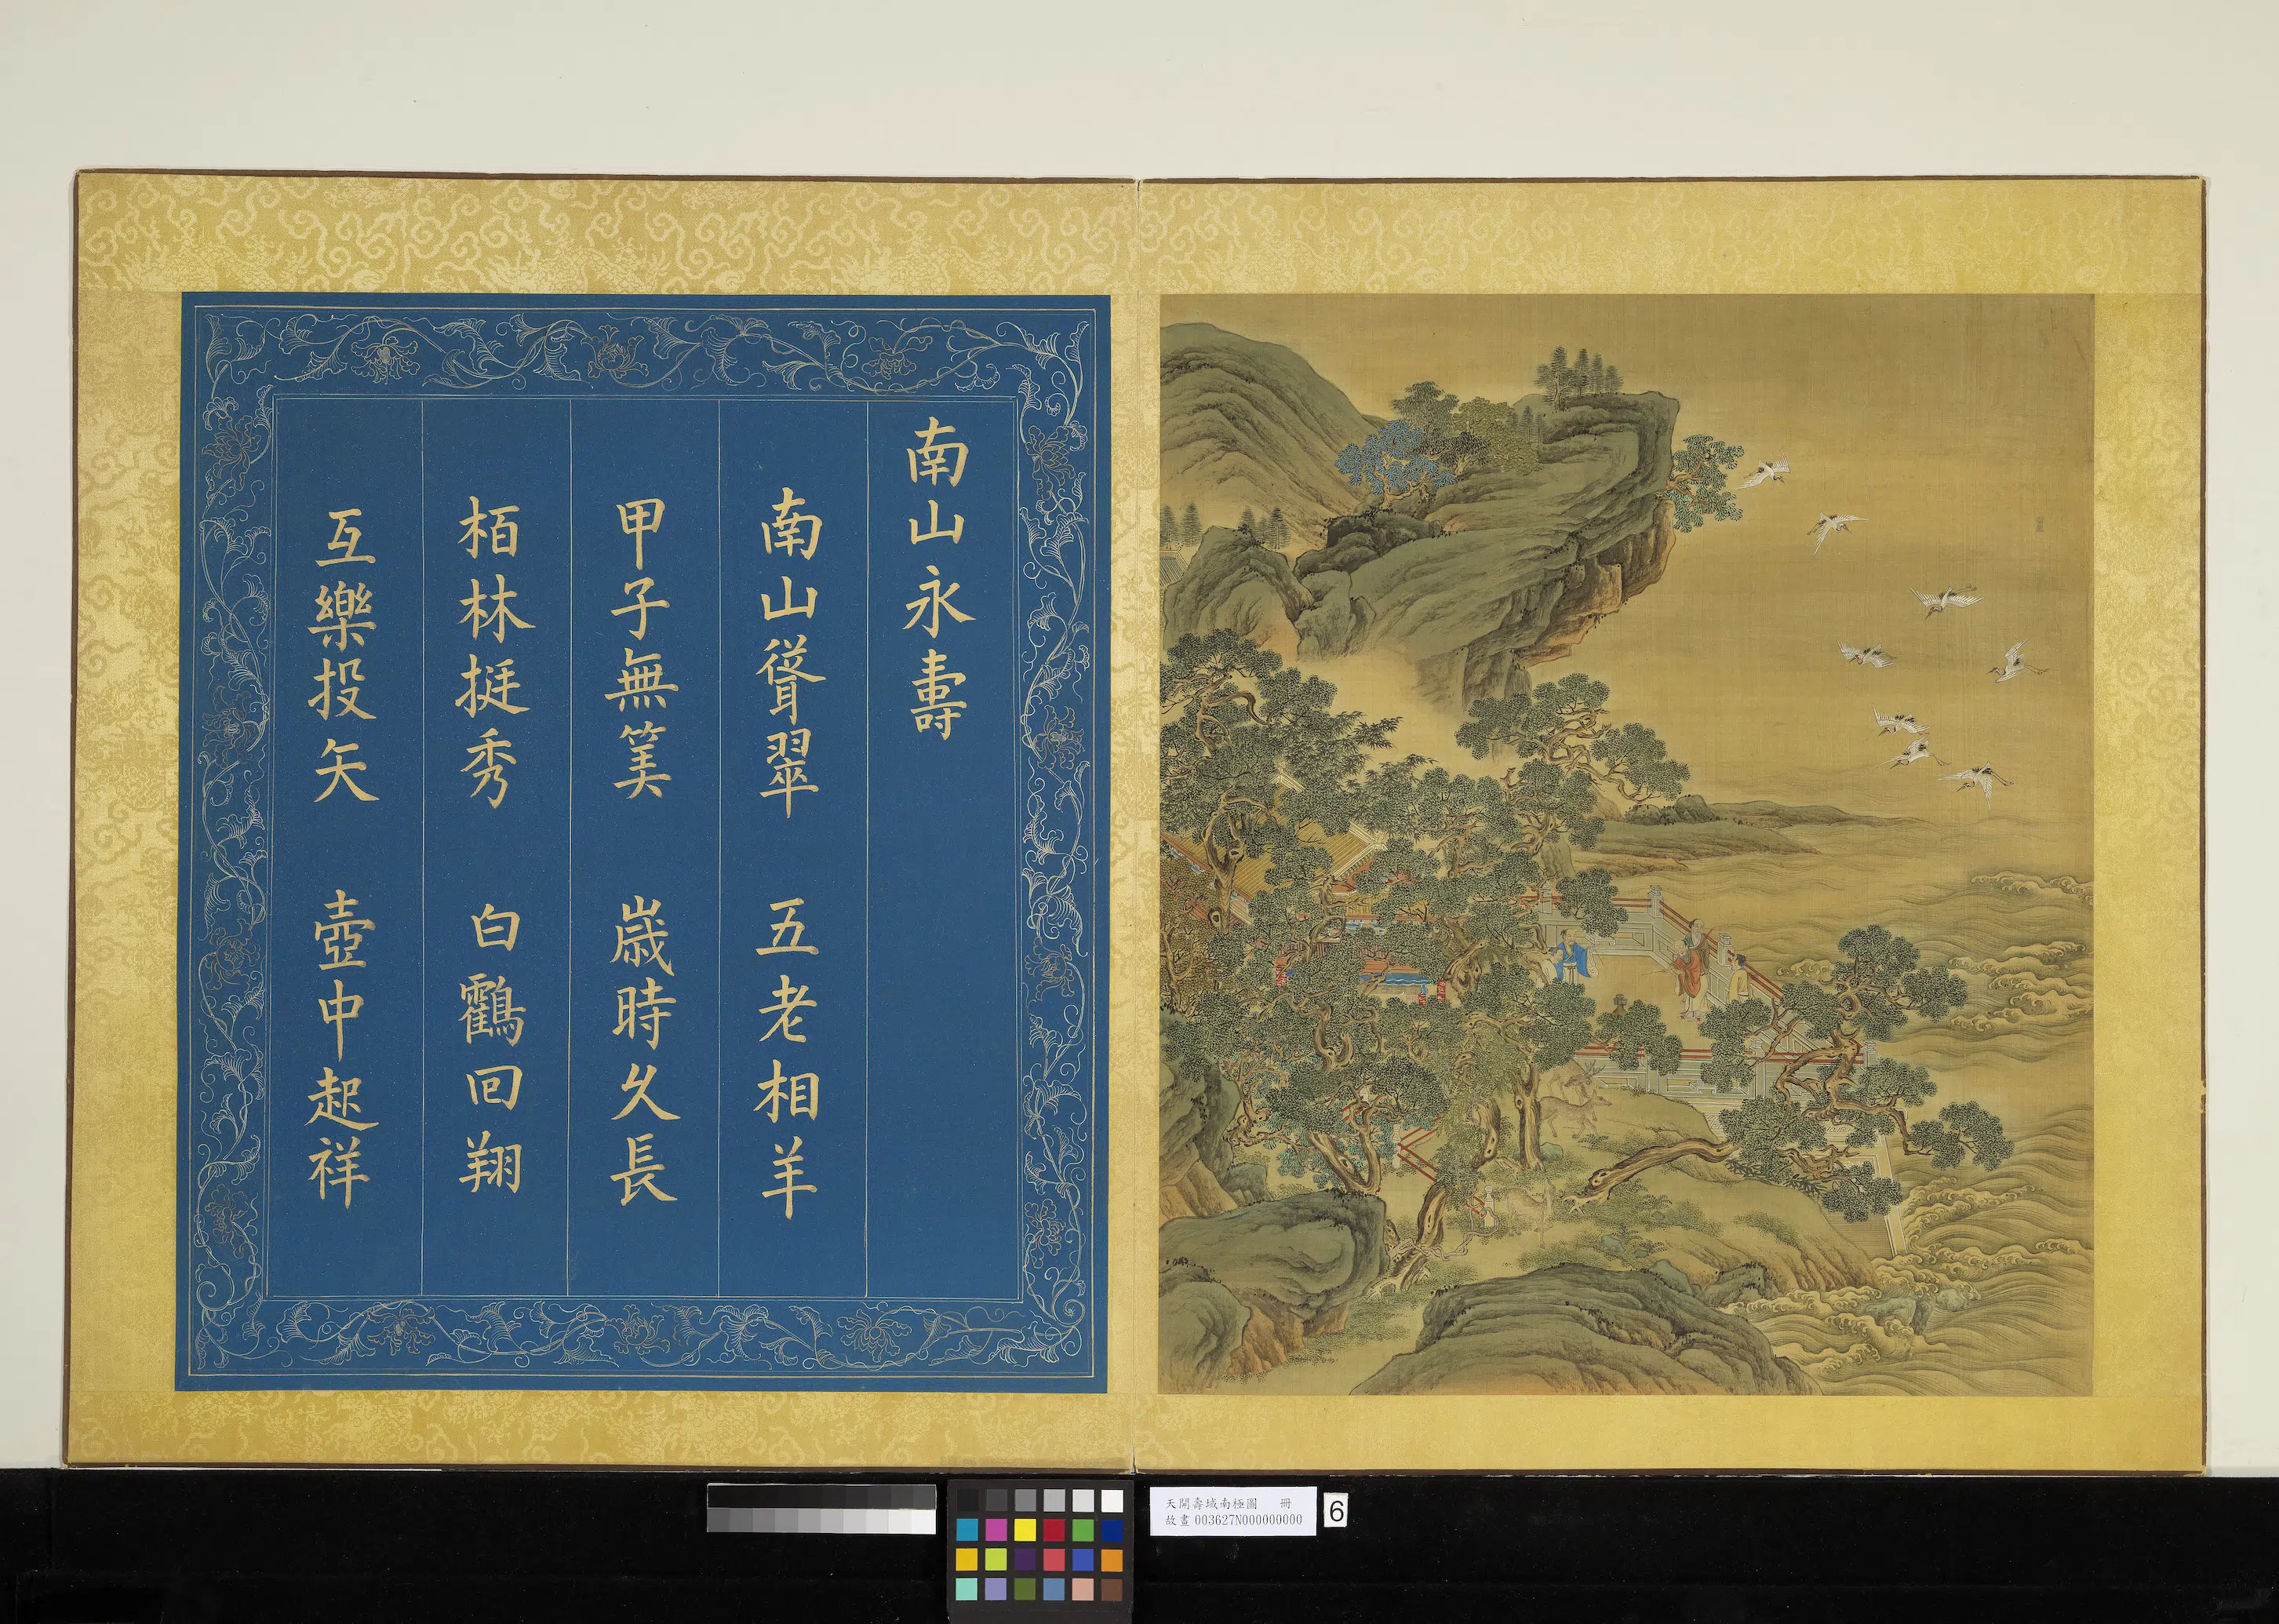 南山永壽
南山聳翠 五老相羊
甲子無筭 歲時久長
栢林挺秀 白鸖回翔
互樂投矢 壺中起祥
天開壽域南極圖 冊
故畫 003627N000000000
6